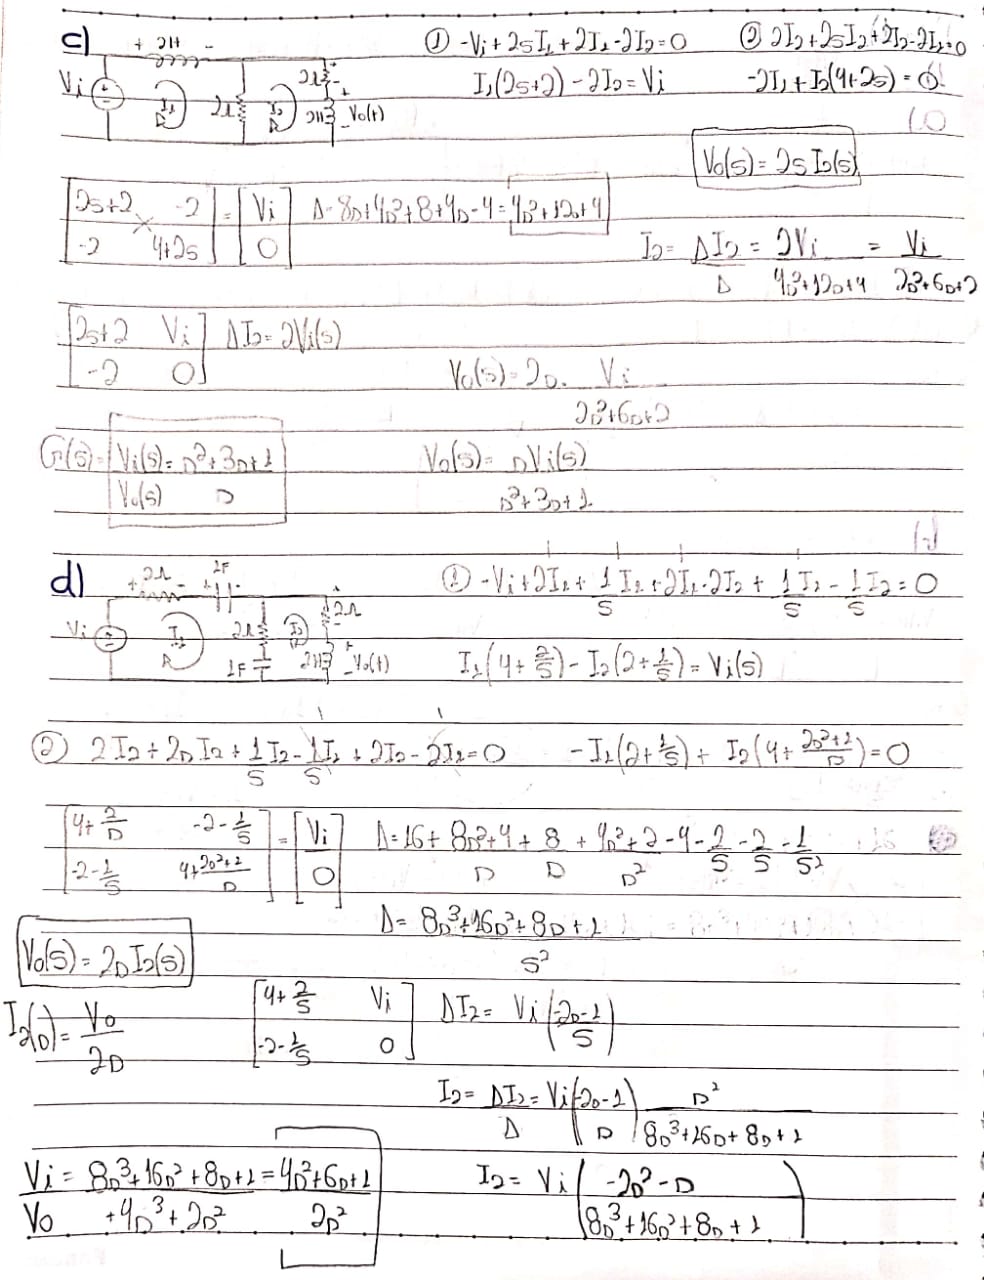 c) + 2H -
Vi I1 2Ω I2 2Ω 2H + - Vo(t)
① -Vi + 2sI1 + 2I1 - 2I2 = 0
② 2I2 + 2sI2 + 2I2 - 2I1 = 0
I1(2s+2) - 2I2 = Vi
-2I1 + I2(4+2s) = 0
Vo(s) = 2s I2(s)
[2s+2 -2; -2 4+2s] = [Vi; 0] Δ = 8s+4s²+8+4s-4 = 4s²+12s+4
I2 = ΔI2/Δ = 2Vi/4s²+12s+4 = Vi/2s²+6s+2
[2s+2 Vi; -2 0] ΔI2 = 2Vi(s)
Vo(s) = 2s. Vi/2s²+6s+2
G(s) = Vi(s)/Vo(s) = s²+3s+1/s
Vo(s) = sVi(s)/s²+3s+1
d) + 2Ω - + 1F -
Vi I1 2Ω 1F I2 2Ω 2H + - Vo(t)
① -Vi + 2I1 + 1/s I1 + 2I1 - 2I2 + 1/s I1 - 1/s I2 = 0
I1(4+2/s) - I2(2+1/s) = Vi(s)
② 2I2 + 2sI2 + 1/s I2 - 1/s I1 + 2I2 - 2I1 = 0
-I1(2+1/s) + I2(4+2s²+1/s) = 0
[4+2/s -2-1/s; -2-1/s 4+2s²+1/s] = [Vi; 0] Δ = 16 + 8s²+4/s + 8/s + 4s²+2/s² - 4 - 2/s - 2/s - 1/s²
Δ = 8s³+16s²+8s+1/s²
Vo(s) = 2s I2(s)
I2(s) = Vo/2s
[4+2/s Vi; -2-1/s 0] ΔI2 = Vi(-2s-1/s)
I2 = ΔI2/Δ = Vi(-2s-1/s) s²/8s³+16s+8s+1
Vi/Vo = 8s³+16s²+8s+1/+4s³+2s² = 4s²+6s+1/2s²
I2 = Vi(-2s²-s/8s³+16s²+8s+1)